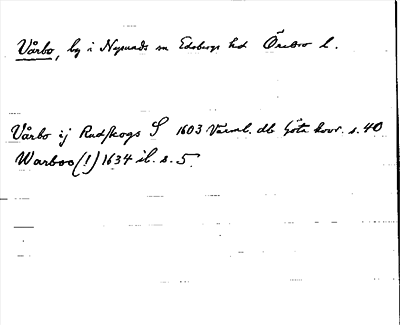 Vårbo, by i Nysunds sn Edsbergs hd Örebro l.
Vårbo ij Rudskogs S 1603 Värml. db Göta hovr. s. 40
Warboo (!) 1634 ib. s. 5.